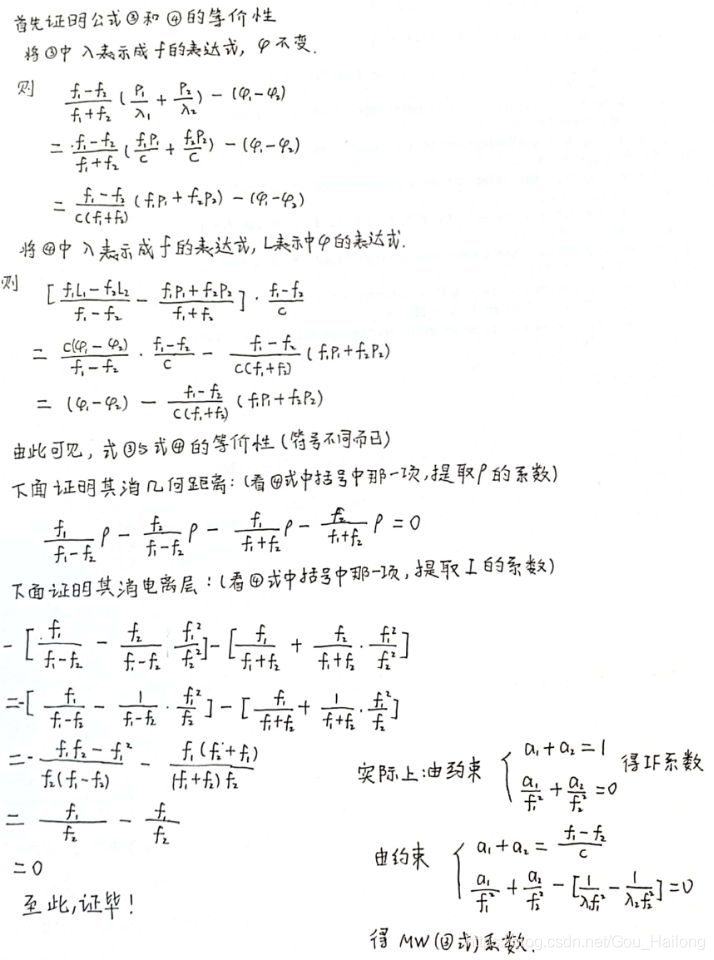 首先证明公式③和④的等价性
将③中λ表示成f的表达式, φ不变.
则 \frac{f_1-f_2}{f_1+f_2}(\frac{P_1}{λ_1}+\frac{P_2}{λ_2})-(φ_1-φ_2)
=\frac{f_1-f_2}{f_1+f_2}(\frac{f_1P_1}{c}+\frac{f_2P_2}{c})-(φ_1-φ_2)
=\frac{f_1-f_2}{c(f_1+f_2)}(f_1P_1+f_2P_2)-(φ_1-φ_2)
将④中λ表示成f的表达式, L表示中φ的表达式.
则 [\frac{f_1L_1-f_2L_2}{f_1-f_2}-\frac{f_1P_1+f_2P_2}{f_1+f_2}]·\frac{f_1-f_2}{c}
=\frac{c(φ_1-φ_2)}{f_1-f_2}·\frac{f_1-f_2}{c}-\frac{f_1-f_2}{c(f_1+f_2)}(f_1P_1+f_2P_2)
=(φ_1-φ_2)-\frac{f_1-f_2}{c(f_1+f_2)}(f_1P_1+f_2P_2)
由此可见, 式③与式④的等价性(符号不同而已)
下面证明其消几何距离:(看④式中括号中那一项,提取ρ的系数)
\frac{f_1}{f_1-f_2}ρ-\frac{f_2}{f_1-f_2}ρ-\frac{f_1}{f_1+f_2}ρ-\frac{f_2}{f_1+f_2}ρ=0
下面证明其消电离层:(看④式中括号中那一项,提取I的系数)
-[\frac{f_1}{f_1-f_2}-\frac{f_2}{f_1-f_2}·\frac{f_1^2}{f_2^2}]-[\frac{f_1}{f_1+f_2}+\frac{f_2}{f_1+f_2}·\frac{f_1^2}{f_2^2}]
=-[\frac{f_1}{f_1-f_2}-\frac{1}{f_1-f_2}·\frac{f_1^2}{f_2}]-[\frac{f_1}{f_1+f_2}+\frac{1}{f_1+f_2}·\frac{f_1^2}{f_2}]
=-\frac{f_1f_2-f_1^2}{f_2(f_1-f_2)}-\frac{f_1(f_2+f_1)}{(f_1+f_2)f_2}
=\frac{f_1}{f_2}-\frac{f_1}{f_2}
=0
至此,证毕!
实际上:由约束 { a_1+a_2=1
\frac{a_1}{f_1^2}+\frac{a_2}{f_2^2}=0 得IF系数
由约束 { a_1+a_2=\frac{f_1-f_2}{c}
\frac{a_1}{f_1^2}+\frac{a_2}{f_2^2}-[\frac{1}{λ_1f_1^2}-\frac{1}{λ_2f_2^2}]=0
得MW(③式)系数.
log.csdn.net/Gou_Hailong